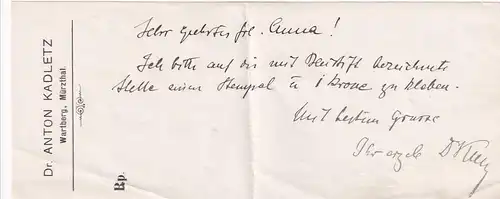 Dr. ANTON KADLETZ
Wartberg, Mürzthal.
Rp.
Sehr geehrtes Frl. Anna!
Ich bitte auf die mit Bleistift bezeichnete
Stelle einen Stempel à 1 Krone zu kleben.
Mit bestem Grusse
Ihr ergeb.